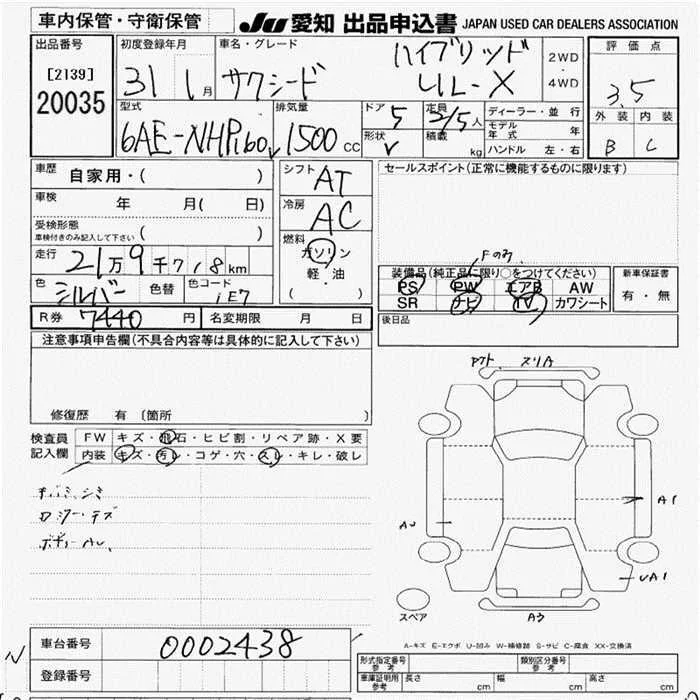 車内保管・守衛保管
JU 愛知 出品申込書 JAPAN USED CAR DEALERS ASSOCIATION
出品番号
[2139]
20035
初度登録年月
31 1月
車名・グレード
サクシード
ハイブリッド
UL-X
2WD
4WD
評価点
3.5
外装 内装
B C
型式
6AE-NHP160V
排気量
1500 CC
ドア
5
形状
V
定員
2/5人
積載 kg
ディーラー・並行
モデル年式 年
ハンドル 左・右
車歴 自家用・( )
車検 年 月( 日)
受検形態
車検付きのみ記入して下さい ( )
走行 21万9千718km
色 シルバー 色替 色コード 1E7
シフト AT
冷房 AC
燃料
ガソリン
軽・油
( )
セールスポイント(正常に機能するものに限ります)
Fのみ
装備品(純正品に限り○をつけてください)
PS PW エアB AW
SR ナビ TV カワシート
新車保証書
有・無
R券 7440円 名変期限 月 日
後日品
注意事項申告欄(不具合内容等は具体的に記入して下さい)
修復歴 有 〔箇所 〕
検査員記入欄
FW キズ・飛石・ヒビ割・リペア跡・X要
内装 キズ・汚レ・コゲ・穴・スレ・キレ・破レ
スリA
AU
A1
UA1
A3
スペア
A-キズ E-エクボ U-凹み W-補修跡 S-サビ C-腐食 XX-交換済
車台番号 0002438
登録番号
形式指定番号 参考
類別区分番号 参考
車庫証明用 参考 長さ cm 幅 cm 高さ cm